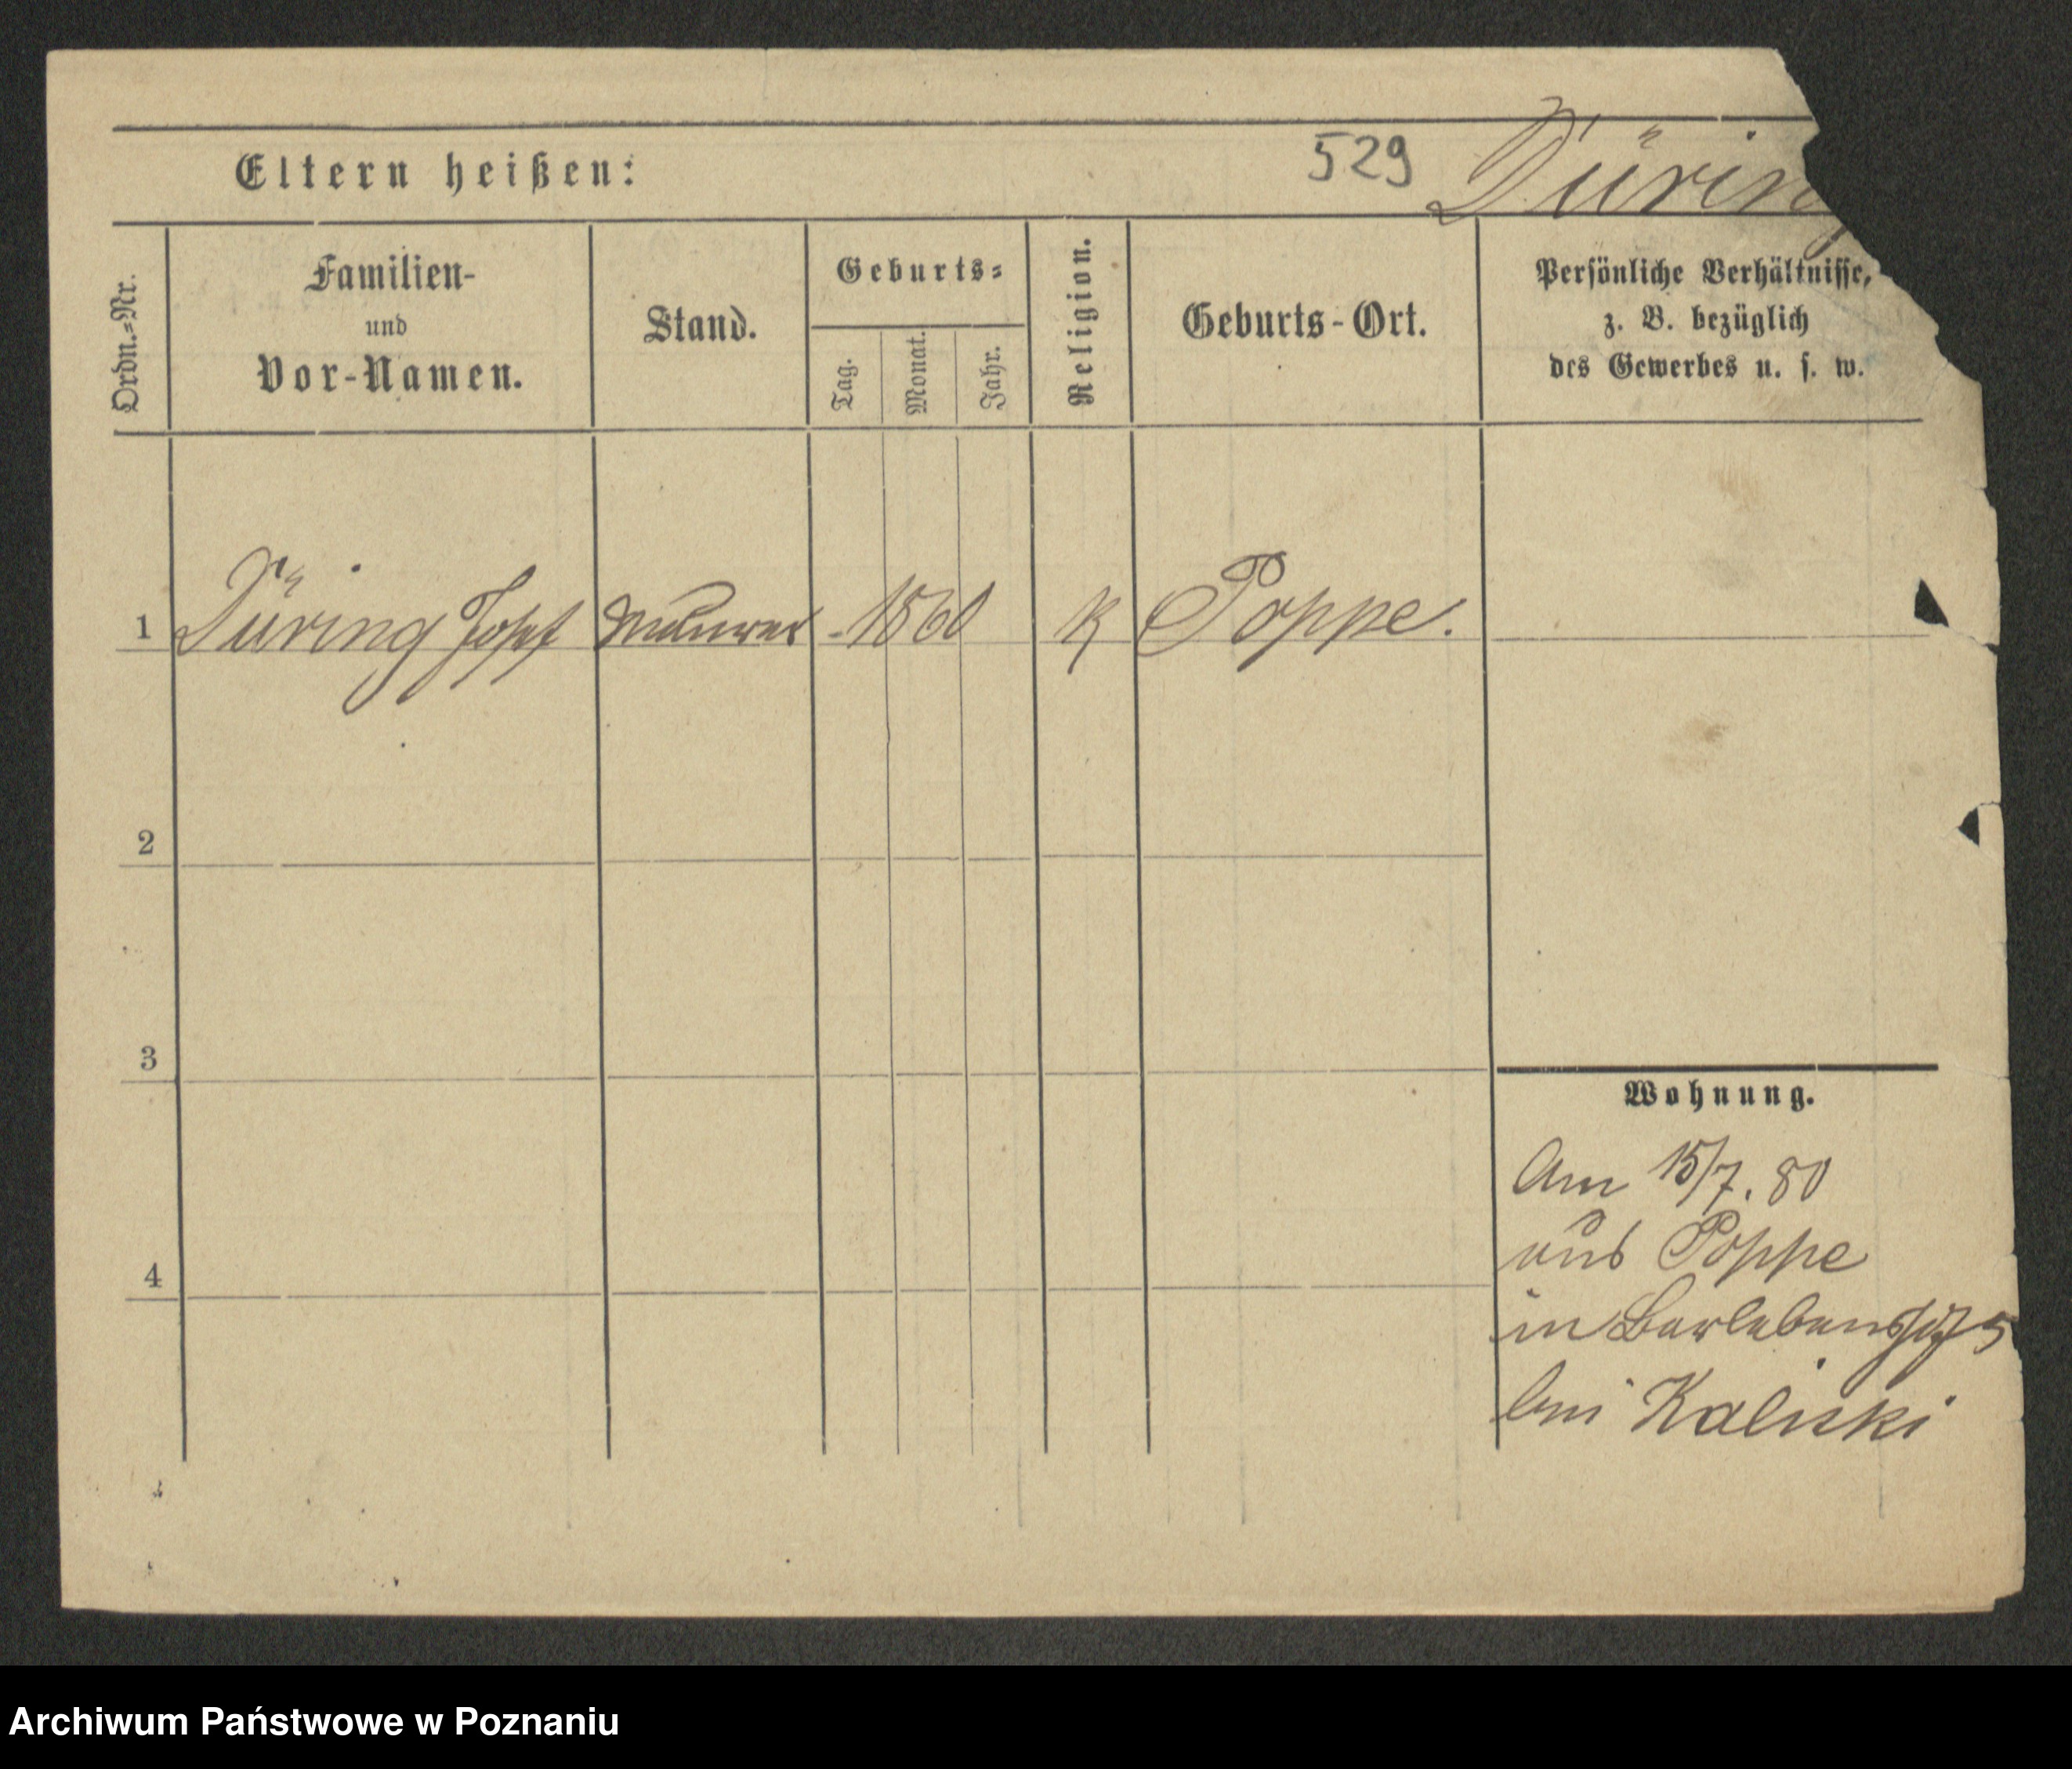 Eltern heißen:
529 Düring
Ordn.-Nr.
Familien-
und
Vor-Namen.
Stand.
Geburts-
Tag.
Monat.
Jahr.
Religion.
Geburts-Ort.
Persönliche Verhältnisse,
z. B. bezüglich
des Gewerbes u. s. w.
1 Düring Josef Maurer - 1860 K Poppe.
2
3
4
Wohnung.
Am 15/7. 80
aus Poppe
in 5
bei Kaliski
Archiwum Państwowe w Poznaniu